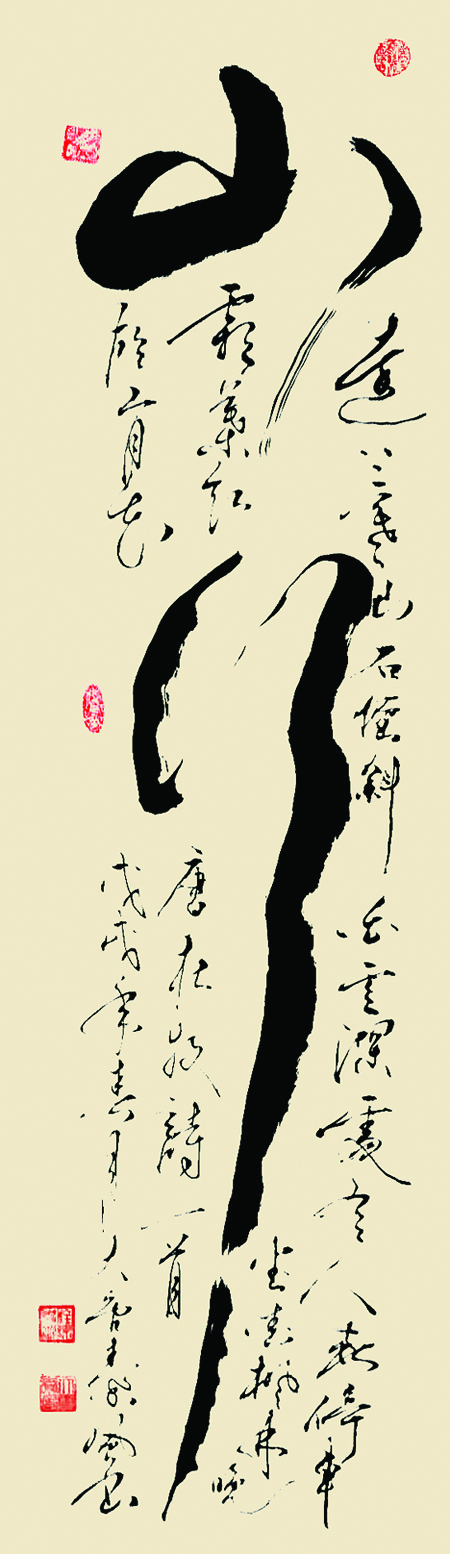 山行
遠上寒山石徑斜
白雲深處有人家停車
坐愛楓林晚
霜葉紅
於二月花
唐杜牧詩一首
戊戌年